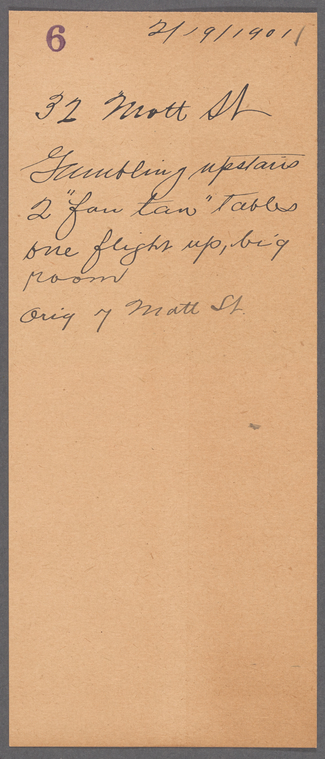 6
2/19/1901
32 Mott St
Gambling upstairs
2 "fan tan" tables
one flight up, big
room
Orig 7 Mott St.